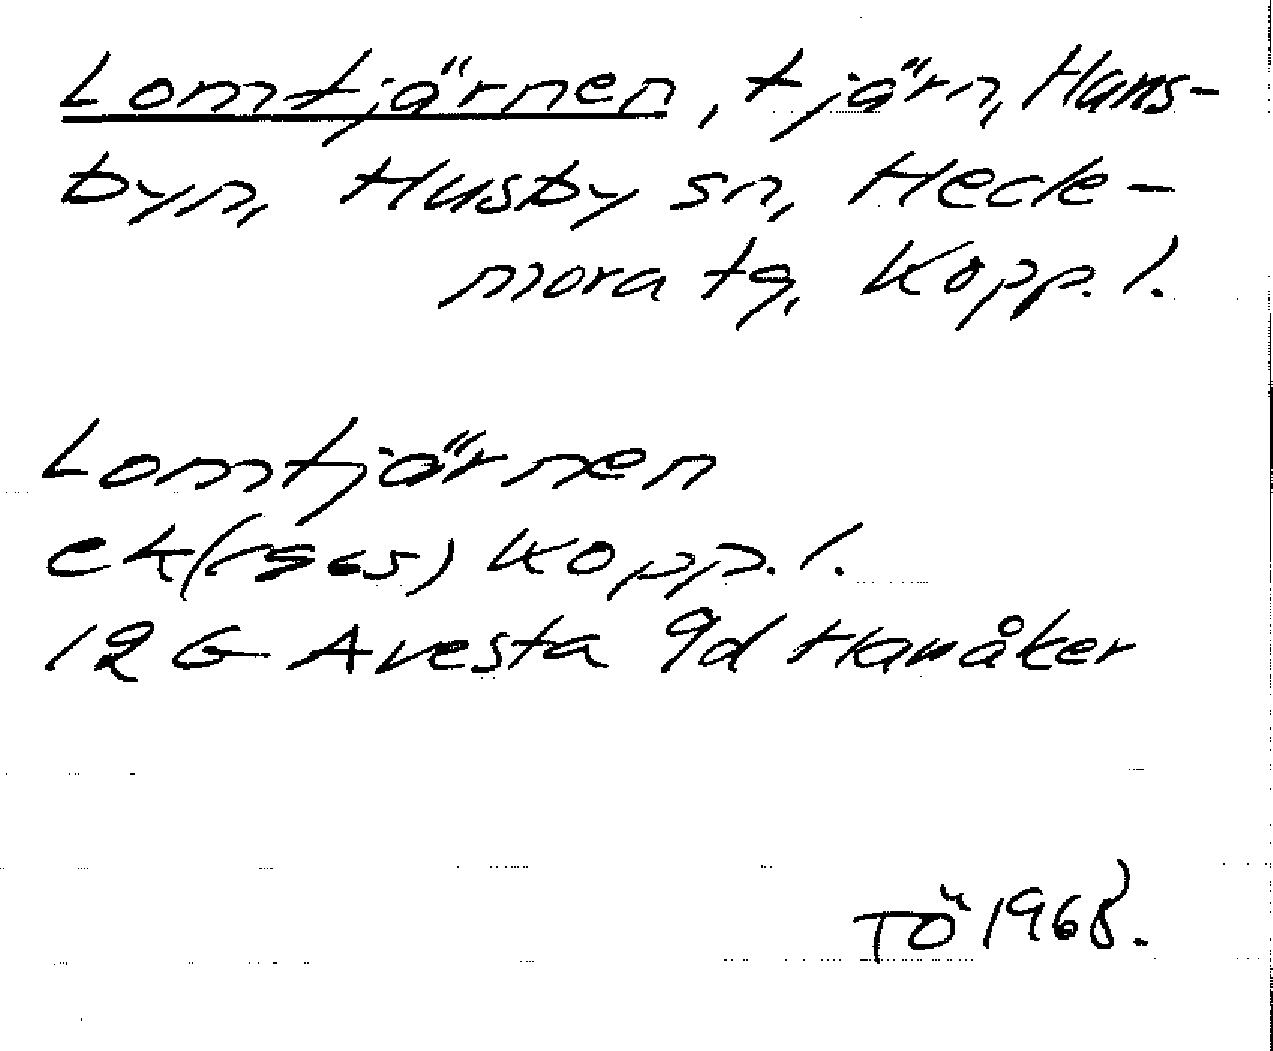 Lomtjärnen, tjärn, Hans-
byn, Husby sn, Hede-
mora tg, Kopp. l.
Lomtjärnen
ek (1965) Kopp. l.
12 G Avesta 9d Hanåker
TÖ 1968.